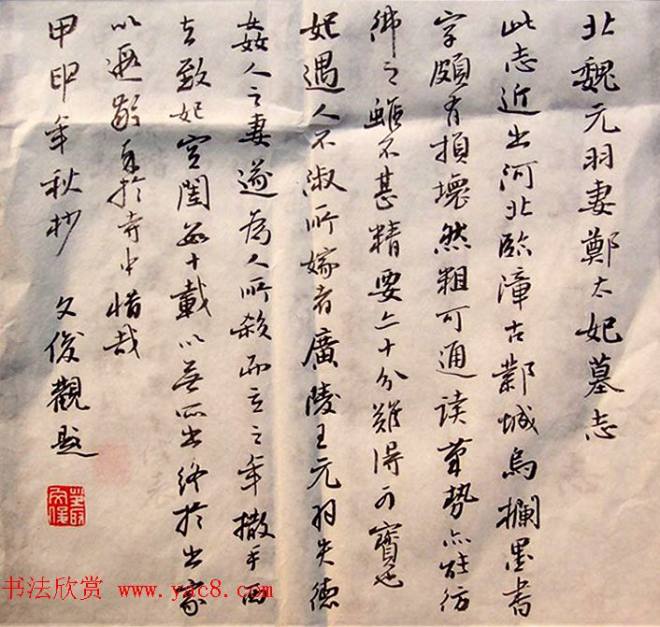 北魏元羽妻鄭太妃墓志
此志近出河北臨漳古鄴城烏攔墨書
字頗有損壞然粗可通读筆勢亦在彷
彿之雖不甚精要亦十分難得可寶也
妃遇人不淑所嫁者廣陵王元羽失德
姦人之妻遂為人所殺而立之年撒手西
去致妃空閨数十載以無所出終於出家
以遯於寺中惜哉
甲申年秋杪 文俊觀題
书法欣赏 www.yac8.com